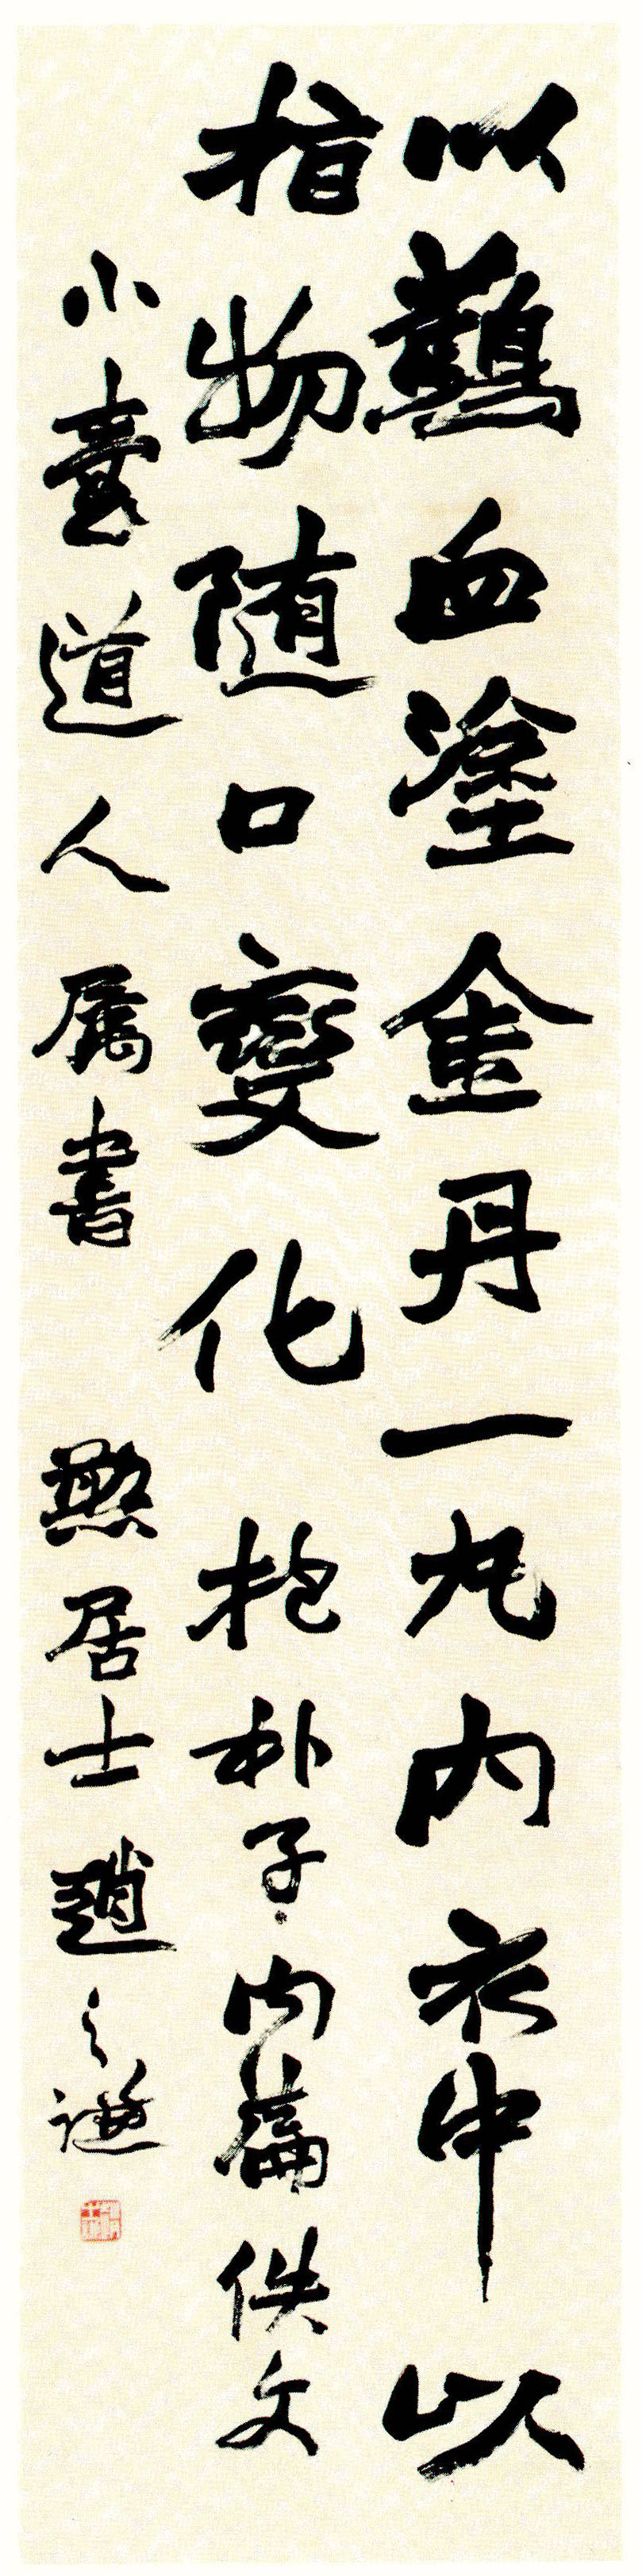 以鷄血塗金丹一丸内衣中以
指物随口變化 抱朴子内篇佚文
小橐道人屬書 憨居士趙之謙